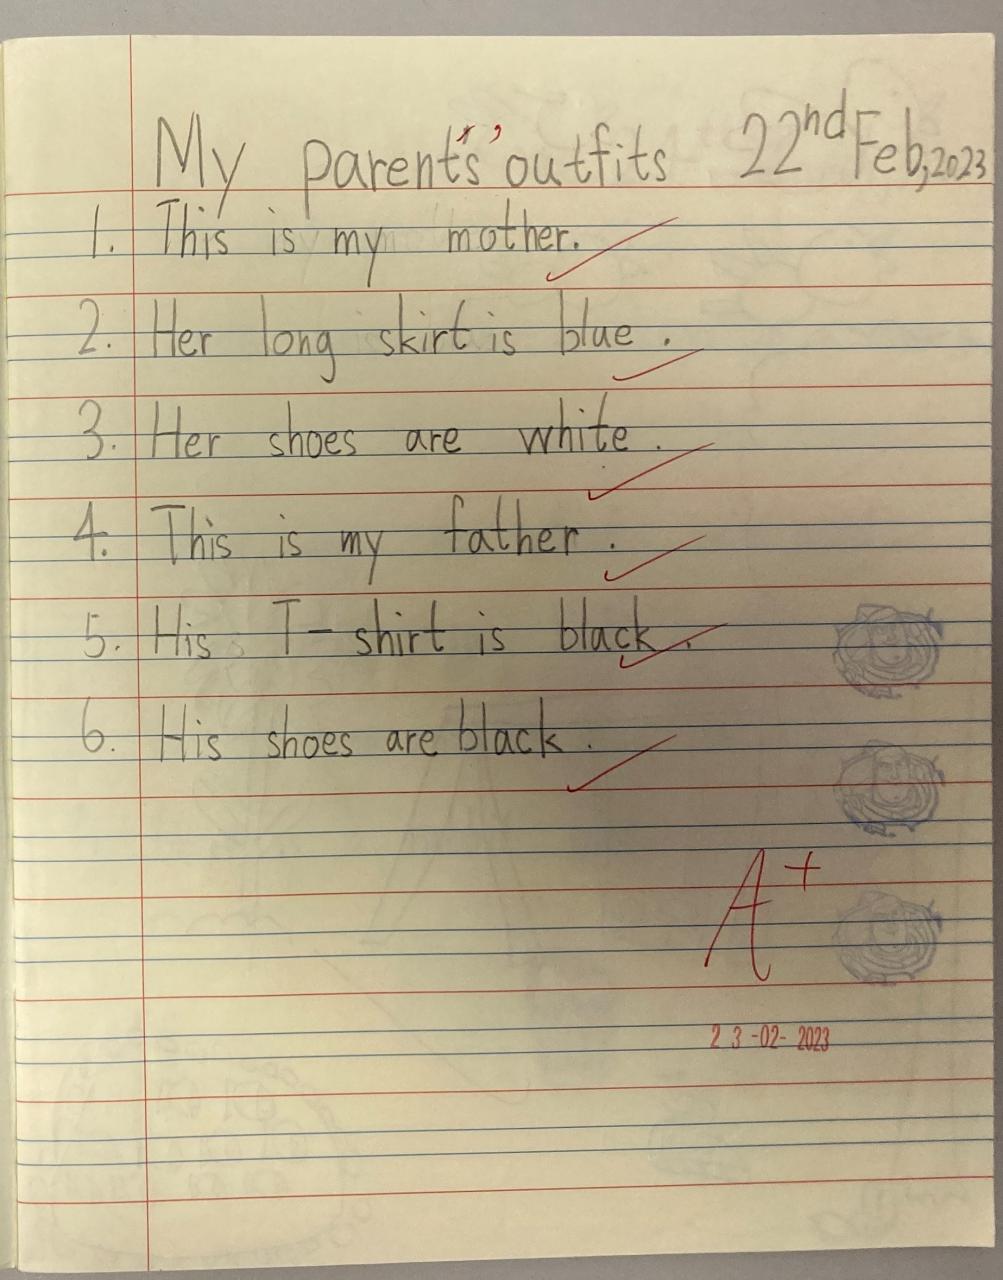 My parents' outfits 22nd Feb, 2023
1. This is my mother.
2. Her long skirt is blue.
3. Her shoes are white.
4. This is my father.
5. His T-shirt is black.
6. His shoes are black.
A+
23-02-2023